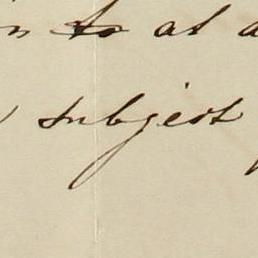 to at a
subject